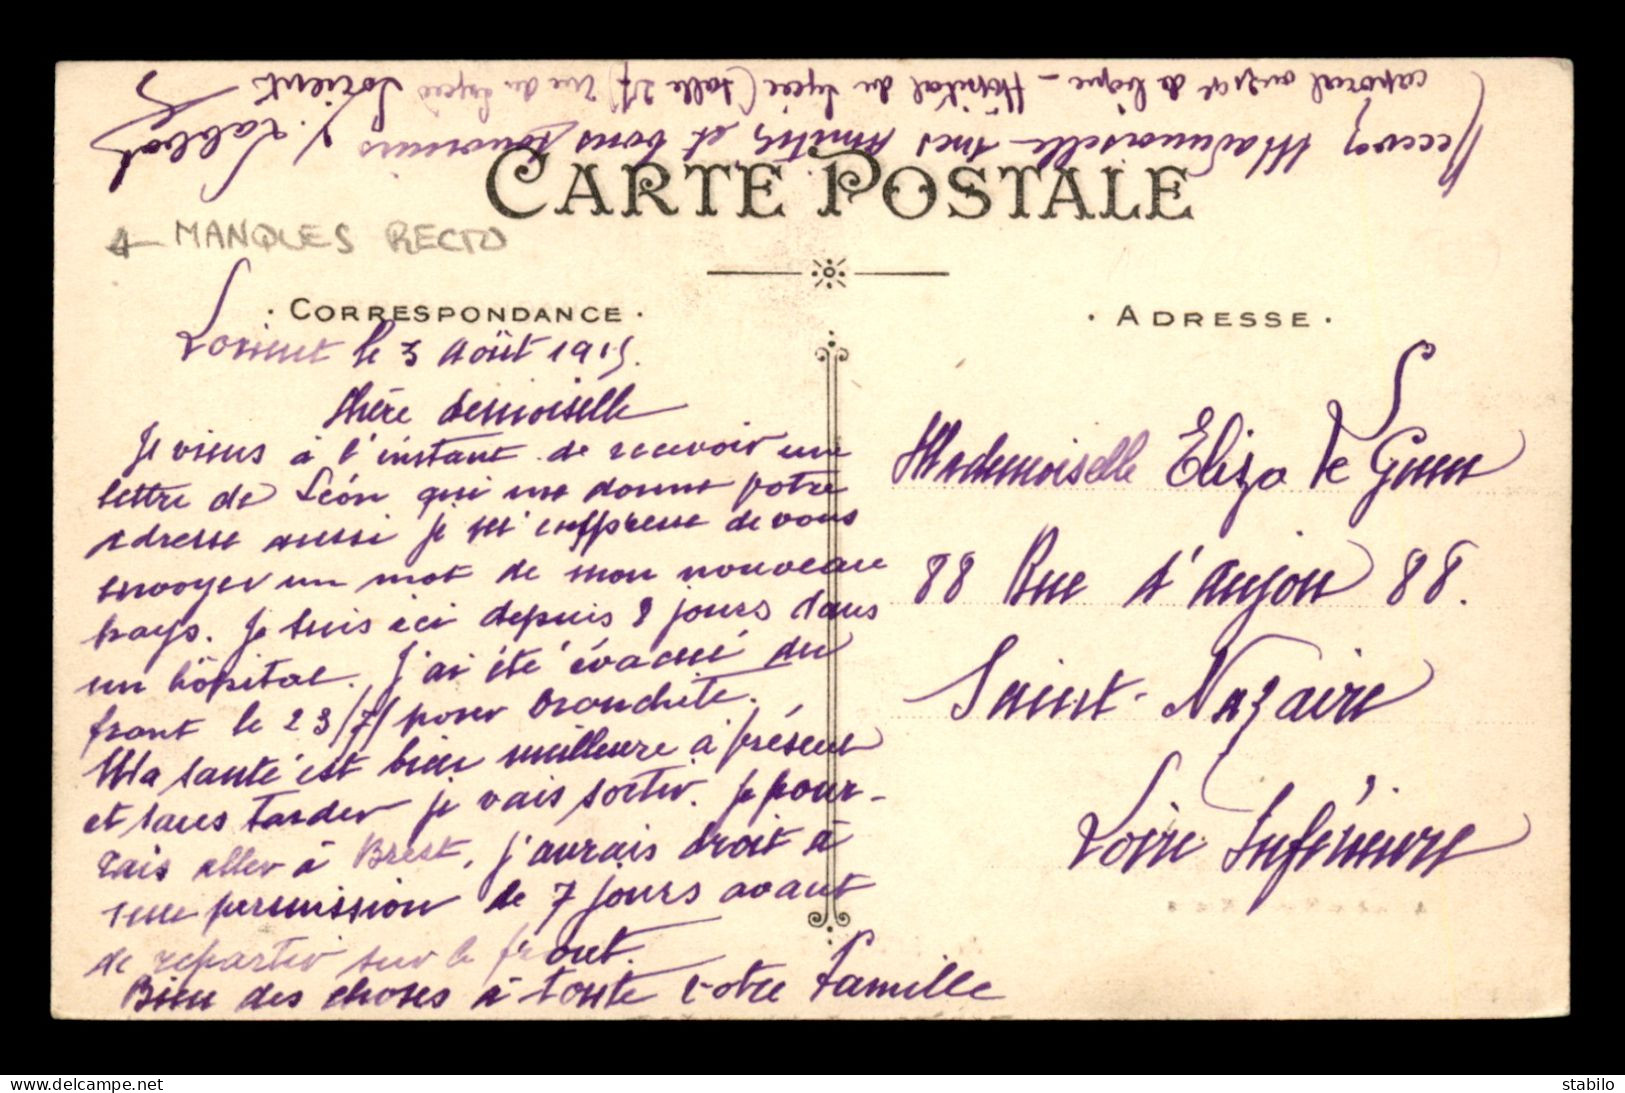 CARTE POSTALE
← MANQUES RECTO
· CORRESPONDANCE ·
Lorient le 3 Août 1915.
Chère demoiselle
Je viens à l'instant de recevoir une
lettre de Léon qui me donne votre
adresse aussi je m'empresse de vous
envoyer un mot de mon nouveau
pays. Je suis ici depuis 8 jours dans
un hôpital. J'ai été évacué du
front le 23/7/ pour bronchite.
Ma santé est bien meilleure à présent
et sans tarder je vais sortir. Je pour-
rais aller à Brest, j'aurais droit à
une permission de 7 jours avant
de repartir sur le front.
Bien des choses à toute votre famille
Recevez Mademoiselle mes amitiés et bons souvenirs
caporal - Hôpital du Lycée (salle 27) rue du Lycée Lorient
· ADRESSE ·
Mademoiselle Eliza Le Guen
88 Rue d'anjou 88.
Saint-Nazaire
Loire Inférieure
delcampe.net
stabilo